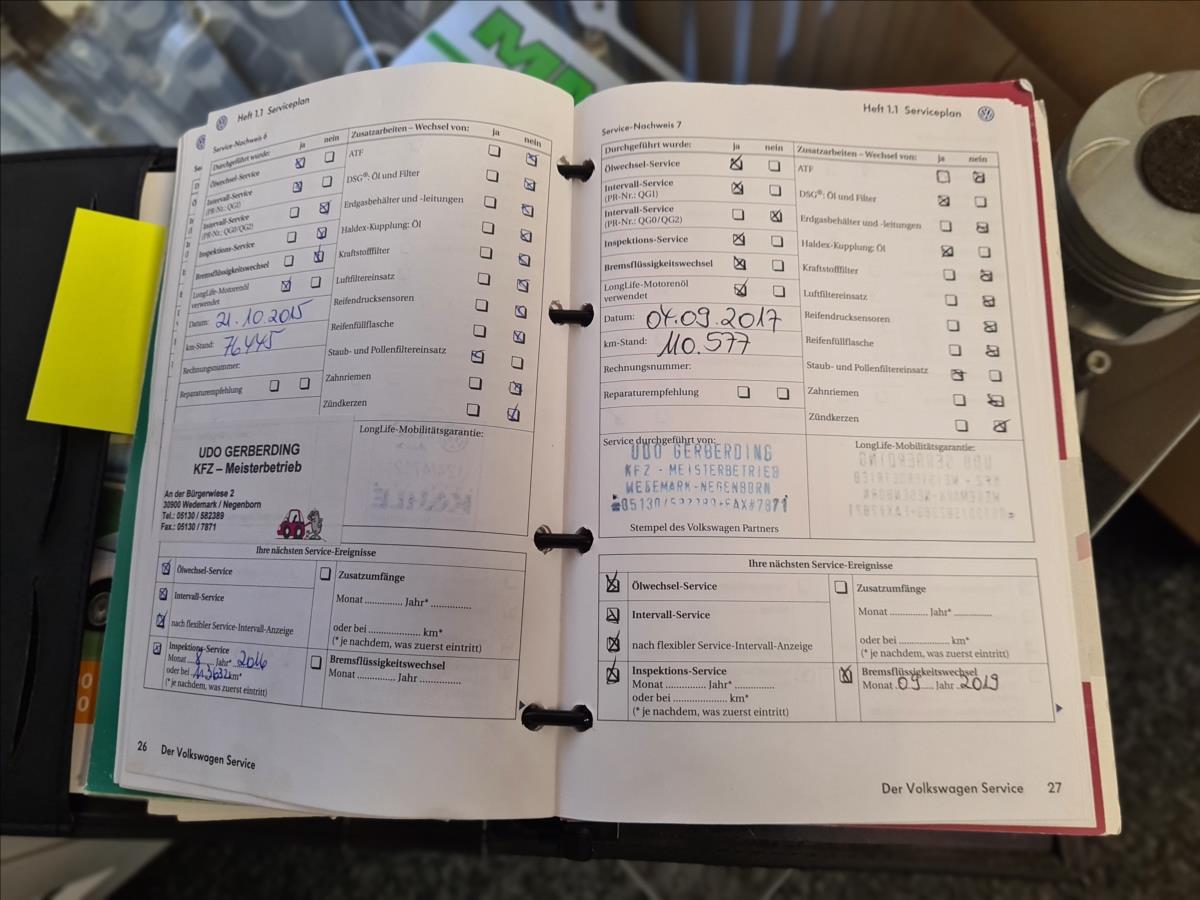 Heft 1.1 Serviceplan
Service-Nachweis 6
Durchgeführt wurde: ja nein
Ölwechsel-Service
Intervall-Service
(PR-Nr.: QG1)
Intervall-Service
(PR-Nr.: QG0/QG2)
Inspektions-Service
Bremsflüssigkeitswechsel
LongLife-Motorenöl
verwendet
Datum: 21.10.2015
km-Stand: 76445
Rechnungsnummer:
Reparaturempfehlung
Zusatzarbeiten – Wechsel von: ja nein
ATF
DSG®: Öl und Filter
Erdgasbehälter und -leitungen
Haldex-Kupplung: Öl
Kraftstofffilter
Luftfiltereinsatz
Reifendrucksensoren
Reifenfüllflasche
Staub- und Pollenfiltereinsatz
Zahnriemen
Zündkerzen
UDO GERBERDING
KFZ – Meisterbetrieb
An der Bürgerwiese 2
30900 Wedemark / Negenborn
Tel.: 05130 / 582389
Fax.: 05130 / 7871
LongLife-Mobilitätsgarantie:
Ihre nächsten Service-Ereignisse
Ölwechsel-Service
Intervall-Service
nach flexibler Service-Intervall-Anzeige
Inspektions-Service
Monat 8 Jahr* 2016
oder bei km*
(* je nachdem, was zuerst eintritt)
Zusatzumfänge
Monat .............. Jahr* ..............
oder bei .................... km*
(* je nachdem, was zuerst eintritt)
Bremsflüssigkeitswechsel
Monat .............. Jahr ..............
26 Der Volkswagen Service
Heft 1.1 Serviceplan
Service-Nachweis 7
Durchgeführt wurde: ja nein
Ölwechsel-Service
Intervall-Service
(PR-Nr.: QG1)
Intervall-Service
(PR-Nr.: QG0/QG2)
Inspektions-Service
Bremsflüssigkeitswechsel
LongLife-Motorenöl
verwendet
Datum: 04.09.2017
km-Stand: 110.577
Rechnungsnummer:
Reparaturempfehlung
Zusatzarbeiten – Wechsel von: ja nein
ATF
DSG®: Öl und Filter
Erdgasbehälter und -leitungen
Haldex-Kupplung: Öl
Kraftstofffilter
Luftfiltereinsatz
Reifendrucksensoren
Reifenfüllflasche
Staub- und Pollenfiltereinsatz
Zahnriemen
Zündkerzen
Service durchgeführt von:
UDO GERBERDING
KFZ - MEISTERBETRIEB
WEDEMARK-NEGENBORN
☎05130/582389+FAX#7871
Stempel des Volkswagen Partners
LongLife-Mobilitätsgarantie:
Ihre nächsten Service-Ereignisse
Ölwechsel-Service
Intervall-Service
nach flexibler Service-Intervall-Anzeige
Inspektions-Service
Monat .............. Jahr* ..............
oder bei .................... km*
(* je nachdem, was zuerst eintritt)
Zusatzumfänge
Monat .............. Jahr* ..............
oder bei .................... km*
(* je nachdem, was zuerst eintritt)
Bremsflüssigkeitswechsel
Monat 09 Jahr 2019
Der Volkswagen Service 27